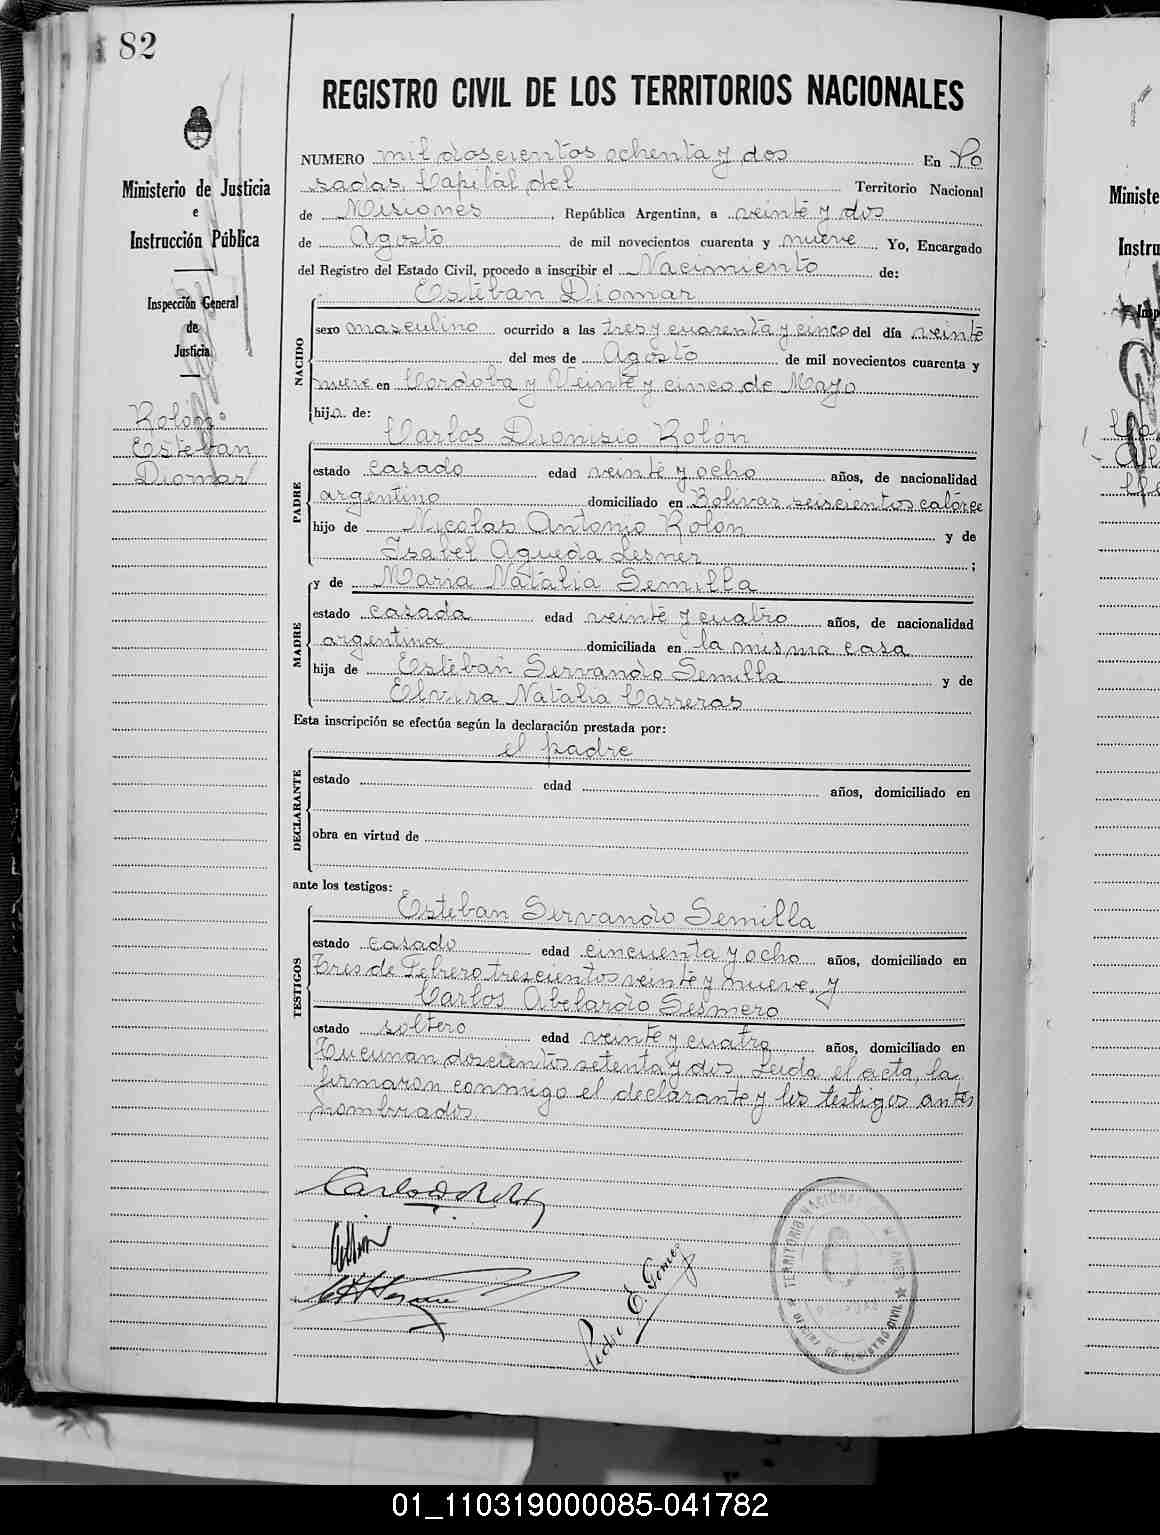 82
REGISTRO CIVIL DE LOS TERRITORIOS NACIONALES
Ministerio de Justicia
e
Instrucción Pública
Inspección General
de
Justicia
Rolon:
Esteban
Diomar
NUMERO mil doscientos ochenta y dos En Po
sadas, Capital del Territorio Nacional
de Misiones, República Argentina, a veinte y dos
de Agosto de mil novecientos cuarenta y nueve Yo, Encargado
del Registro del Estado Civil, procedo a inscribir el Nacimiento de:
Esteban Diomar
NACIDO
sexo masculino ocurrido a las tres y cuarenta y cinco del día veinte
del mes de Agosto de mil novecientos cuarenta y
nueve en Cordoba y Veinte y cinco de Mayo
hijo de:
Carlos Dionisio Rolón
PADRE
estado casado edad veinte y ocho años, de nacionalidad
argentino domiciliado en Bolivar seiscientos catorce
hijo de Nicolas Antonio Rolon y de
Isabel Agueda Lesner;
MADRE
y de Maria Natalia Semilla
estado casada edad veinte y cuatro años, de nacionalidad
argentina domiciliada en la misma casa
hija de Esteban Servando Semilla y de
Elvira Natalia Carreras
Esta inscripción se efectúa según la declaración prestada por:
el padre
DECLARANTE
estado edad años, domiciliado en
obra en virtud de
ante los testigos:
Esteban Servando Semilla
TESTIGOS
estado casado edad cincuenta y ocho años, domiciliado en
Tres de Febrero trescientos veinte y nueve, y
Carlos Abelardo Sesmero
estado soltero edad veinte y cuatro años, domiciliado en
Tucuman doscientos setenta y dos Leida el acta, la
firmaron conmigo el declarante y los testigos antes
nombrados
Pedro E. Gomez
OFICINA DE REGISTRO CIVIL
Ministe
Instru
01_110319000085-041782